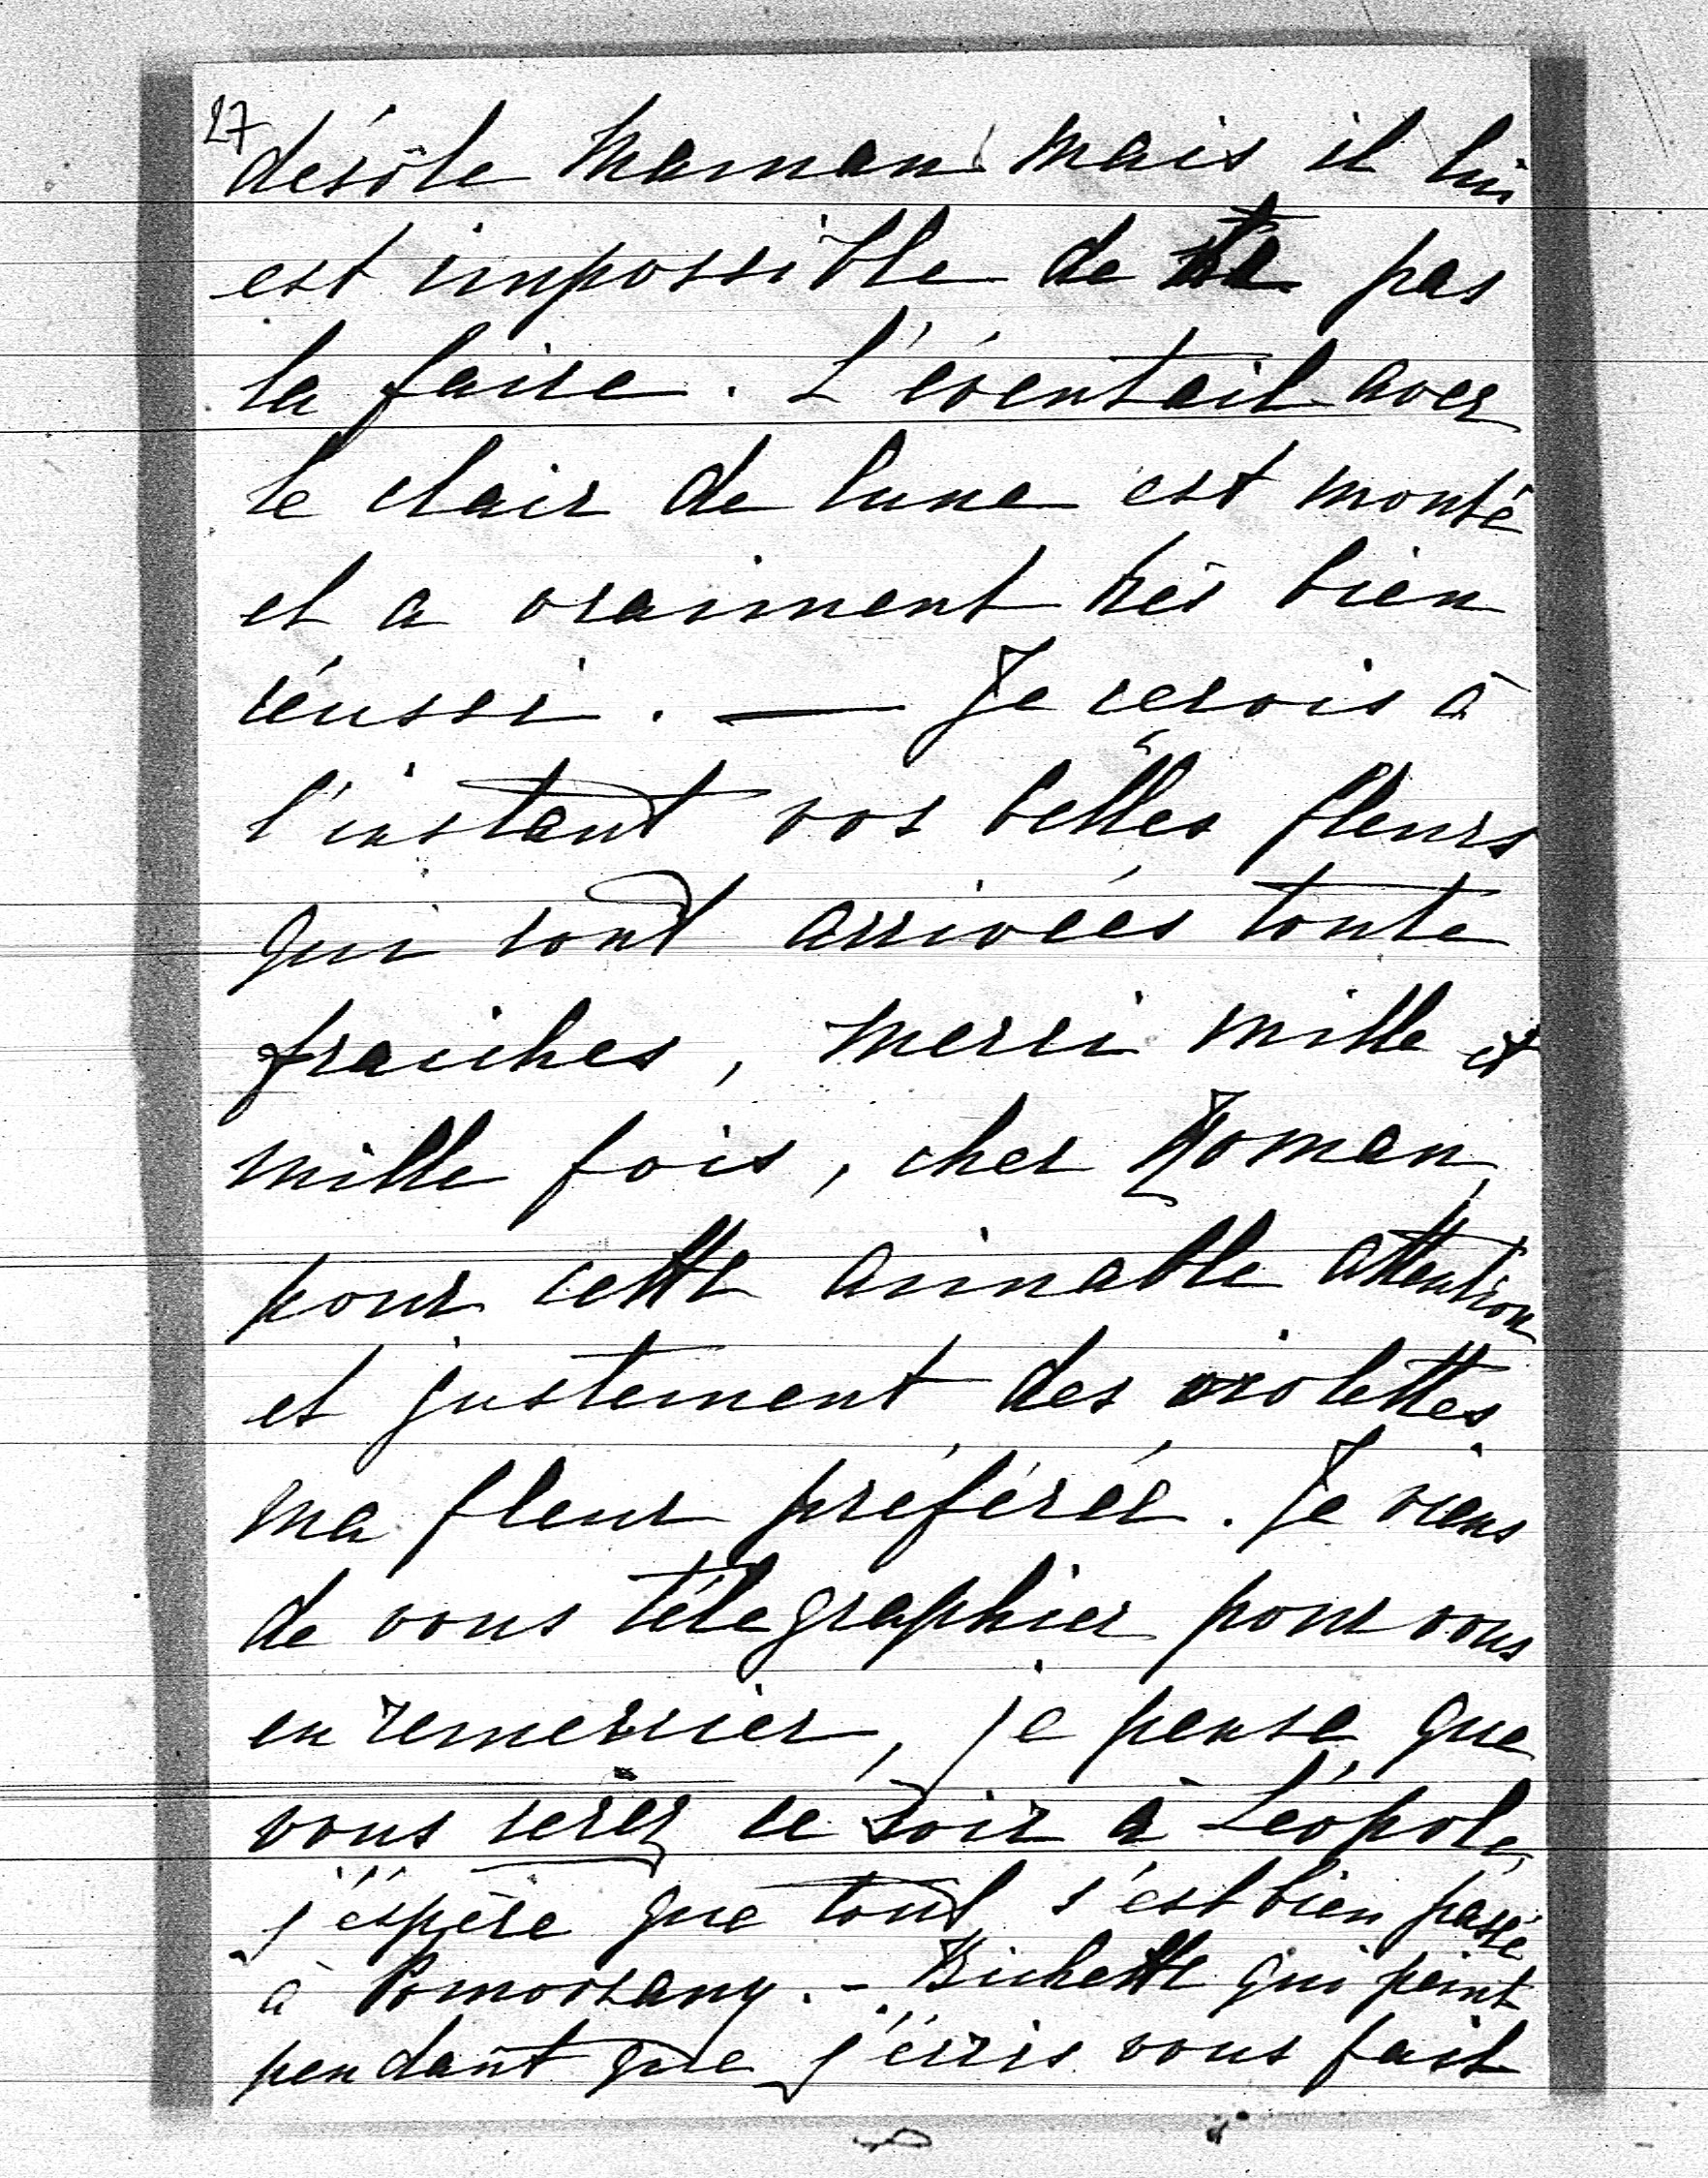 27
désole Maman mais il lui
est impossible de pas
la faire. L'éventail avec
le clair de lune est monté
et a vraiment très bien
réussi. — Je reçois à
l'instant vos belles fleurs
qui sont arrivées toute
fraiches, merci mille et
mille fois, cher Roman,
pour cette aimable attention
et justement des violettes
ma fleur préférée. Je viens
de vous télégraphier pour vous
en remercier, je pense que
vous serez ce soir à Léopole,
j'éspère que tout s'est bien passé
à Pomorzany. - Bichette qui peint
pendant que j'écris vous fait